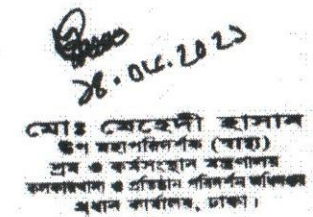 ২৪.০৫.২০২১
মোঃ মেহেদী হাসান
উপ মহাপরিদর্শক (স্বাস্থ্য)
শ্রম ও কর্মসংস্থান মন্ত্রণালয়
কলকারখানা ও প্রতিষ্ঠান পরিদর্শন অধিদপ্তর
প্রধান কার্যালয়, ঢাকা।